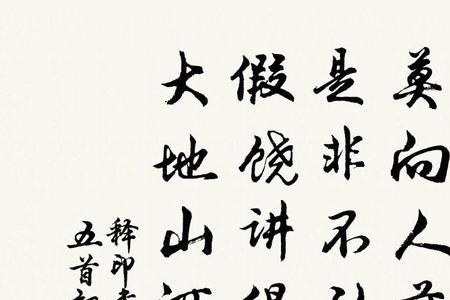 莫向人前
是非不
假饶讲得
大地山河
释印
五首